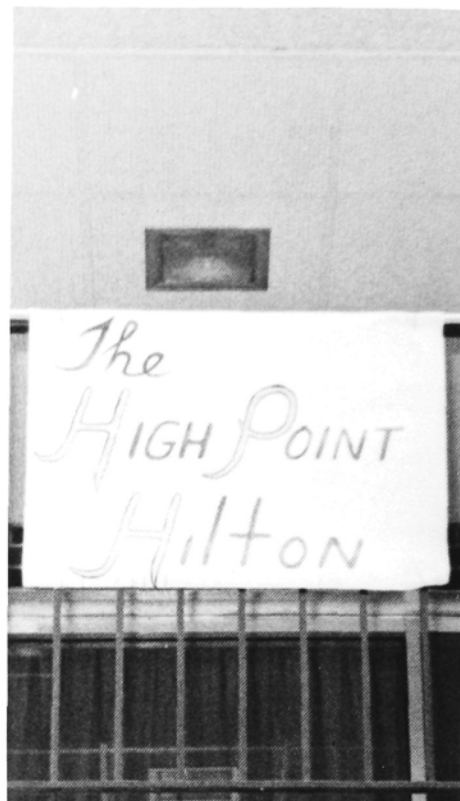 The
HIGH POINT
HiltON